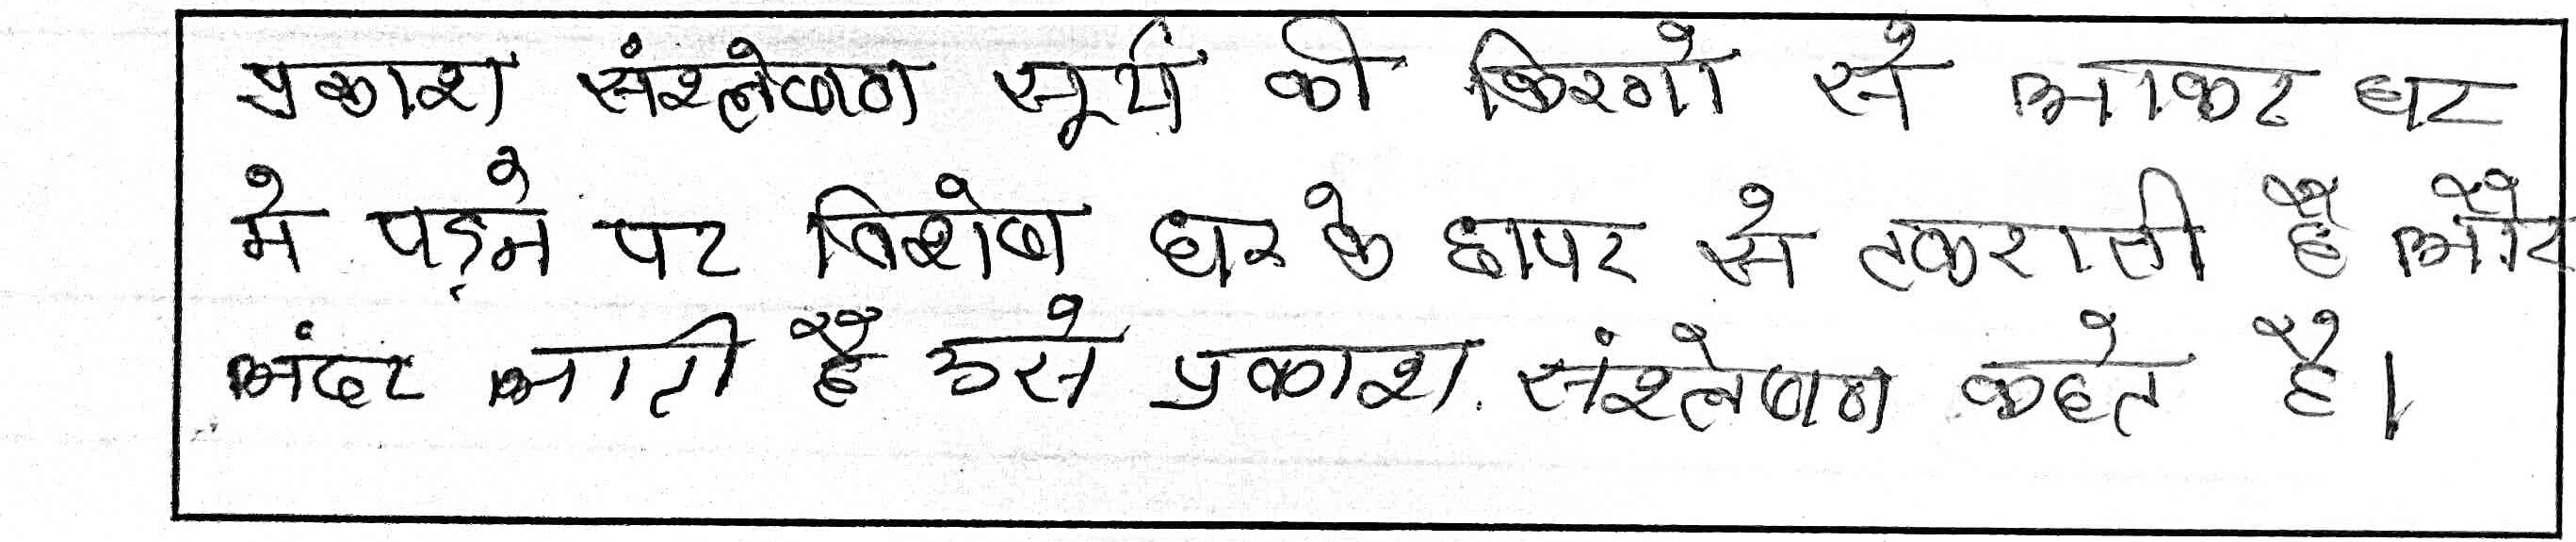 प्रकाश संश्लेषण सूर्य की किरणो से आकर घर
मे पड़ने पर विशेष घर के छापर से टकराती है और
अंदर आती है उसे प्रकाश संश्लेषण कहते है।